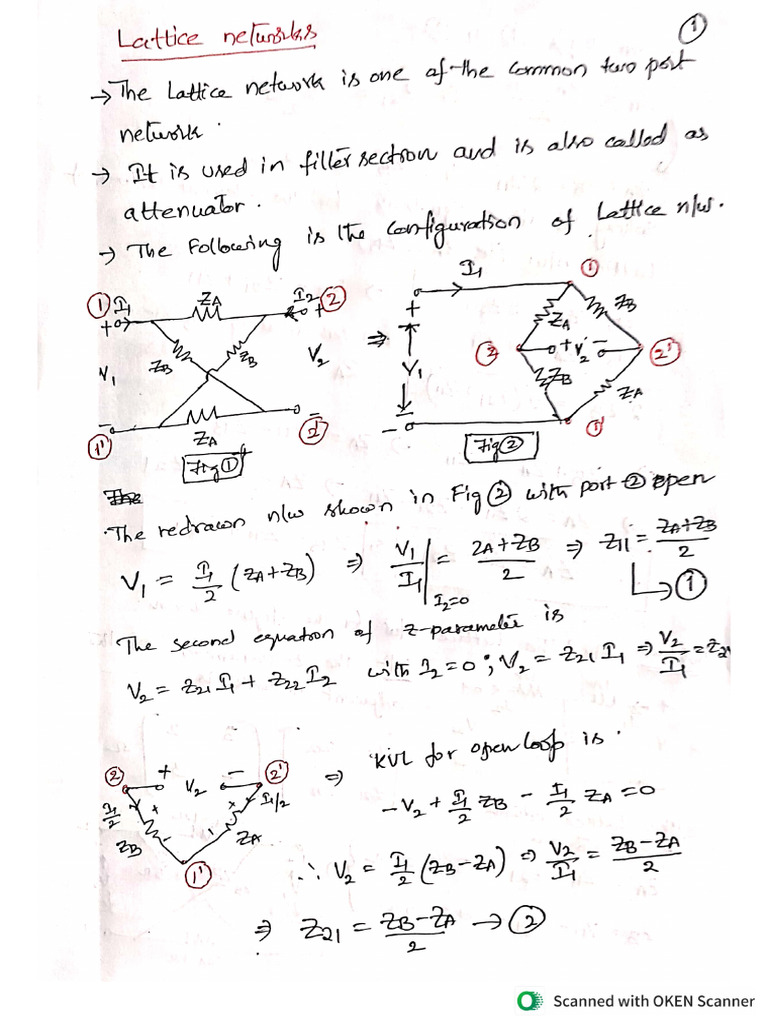 Lattice networks
①
→ The Lattice network is one of the common two port
network.
→ It is used in filter section and is also called as
attenuator.
→ The Following is the configuration of Lattice n/w.
① I1 ZA I2 ②
+ +
ZB ZB
V1 V2
− −
①' ZA ②'
Fig ①
⇒
I1 ①
+ ZA ZB
② + V2 − ②'
V1
ZB ZA
− ①'
Fig ②
The
The redrawn n/w shown in Fig ② with port ② open
V1 = I1/2 (ZA+ZB) ⇒ V1/I1 |I2=0 = ZA+ZB/2 ⇒ Z11 = ZA+ZB/2
→ ①
The second equation of Z-parameter is
V2 = Z21 I1 + Z22 I2 with I2=0 ; V2 = Z21 I1 ⇒ V2/I1 = Z21
② + V2 − ②'
I1/2 + − + − I1/2
ZB ZA
①'
⇒ KVL for open loop is.
−V2 + I1/2 ZB − I1/2 ZA = 0
∴ V2 = I1/2 (ZB−ZA) ⇒ V2/I1 = ZB−ZA/2
⇒ Z21 = ZB−ZA/2 → ②
Scanned with OKEN Scanner